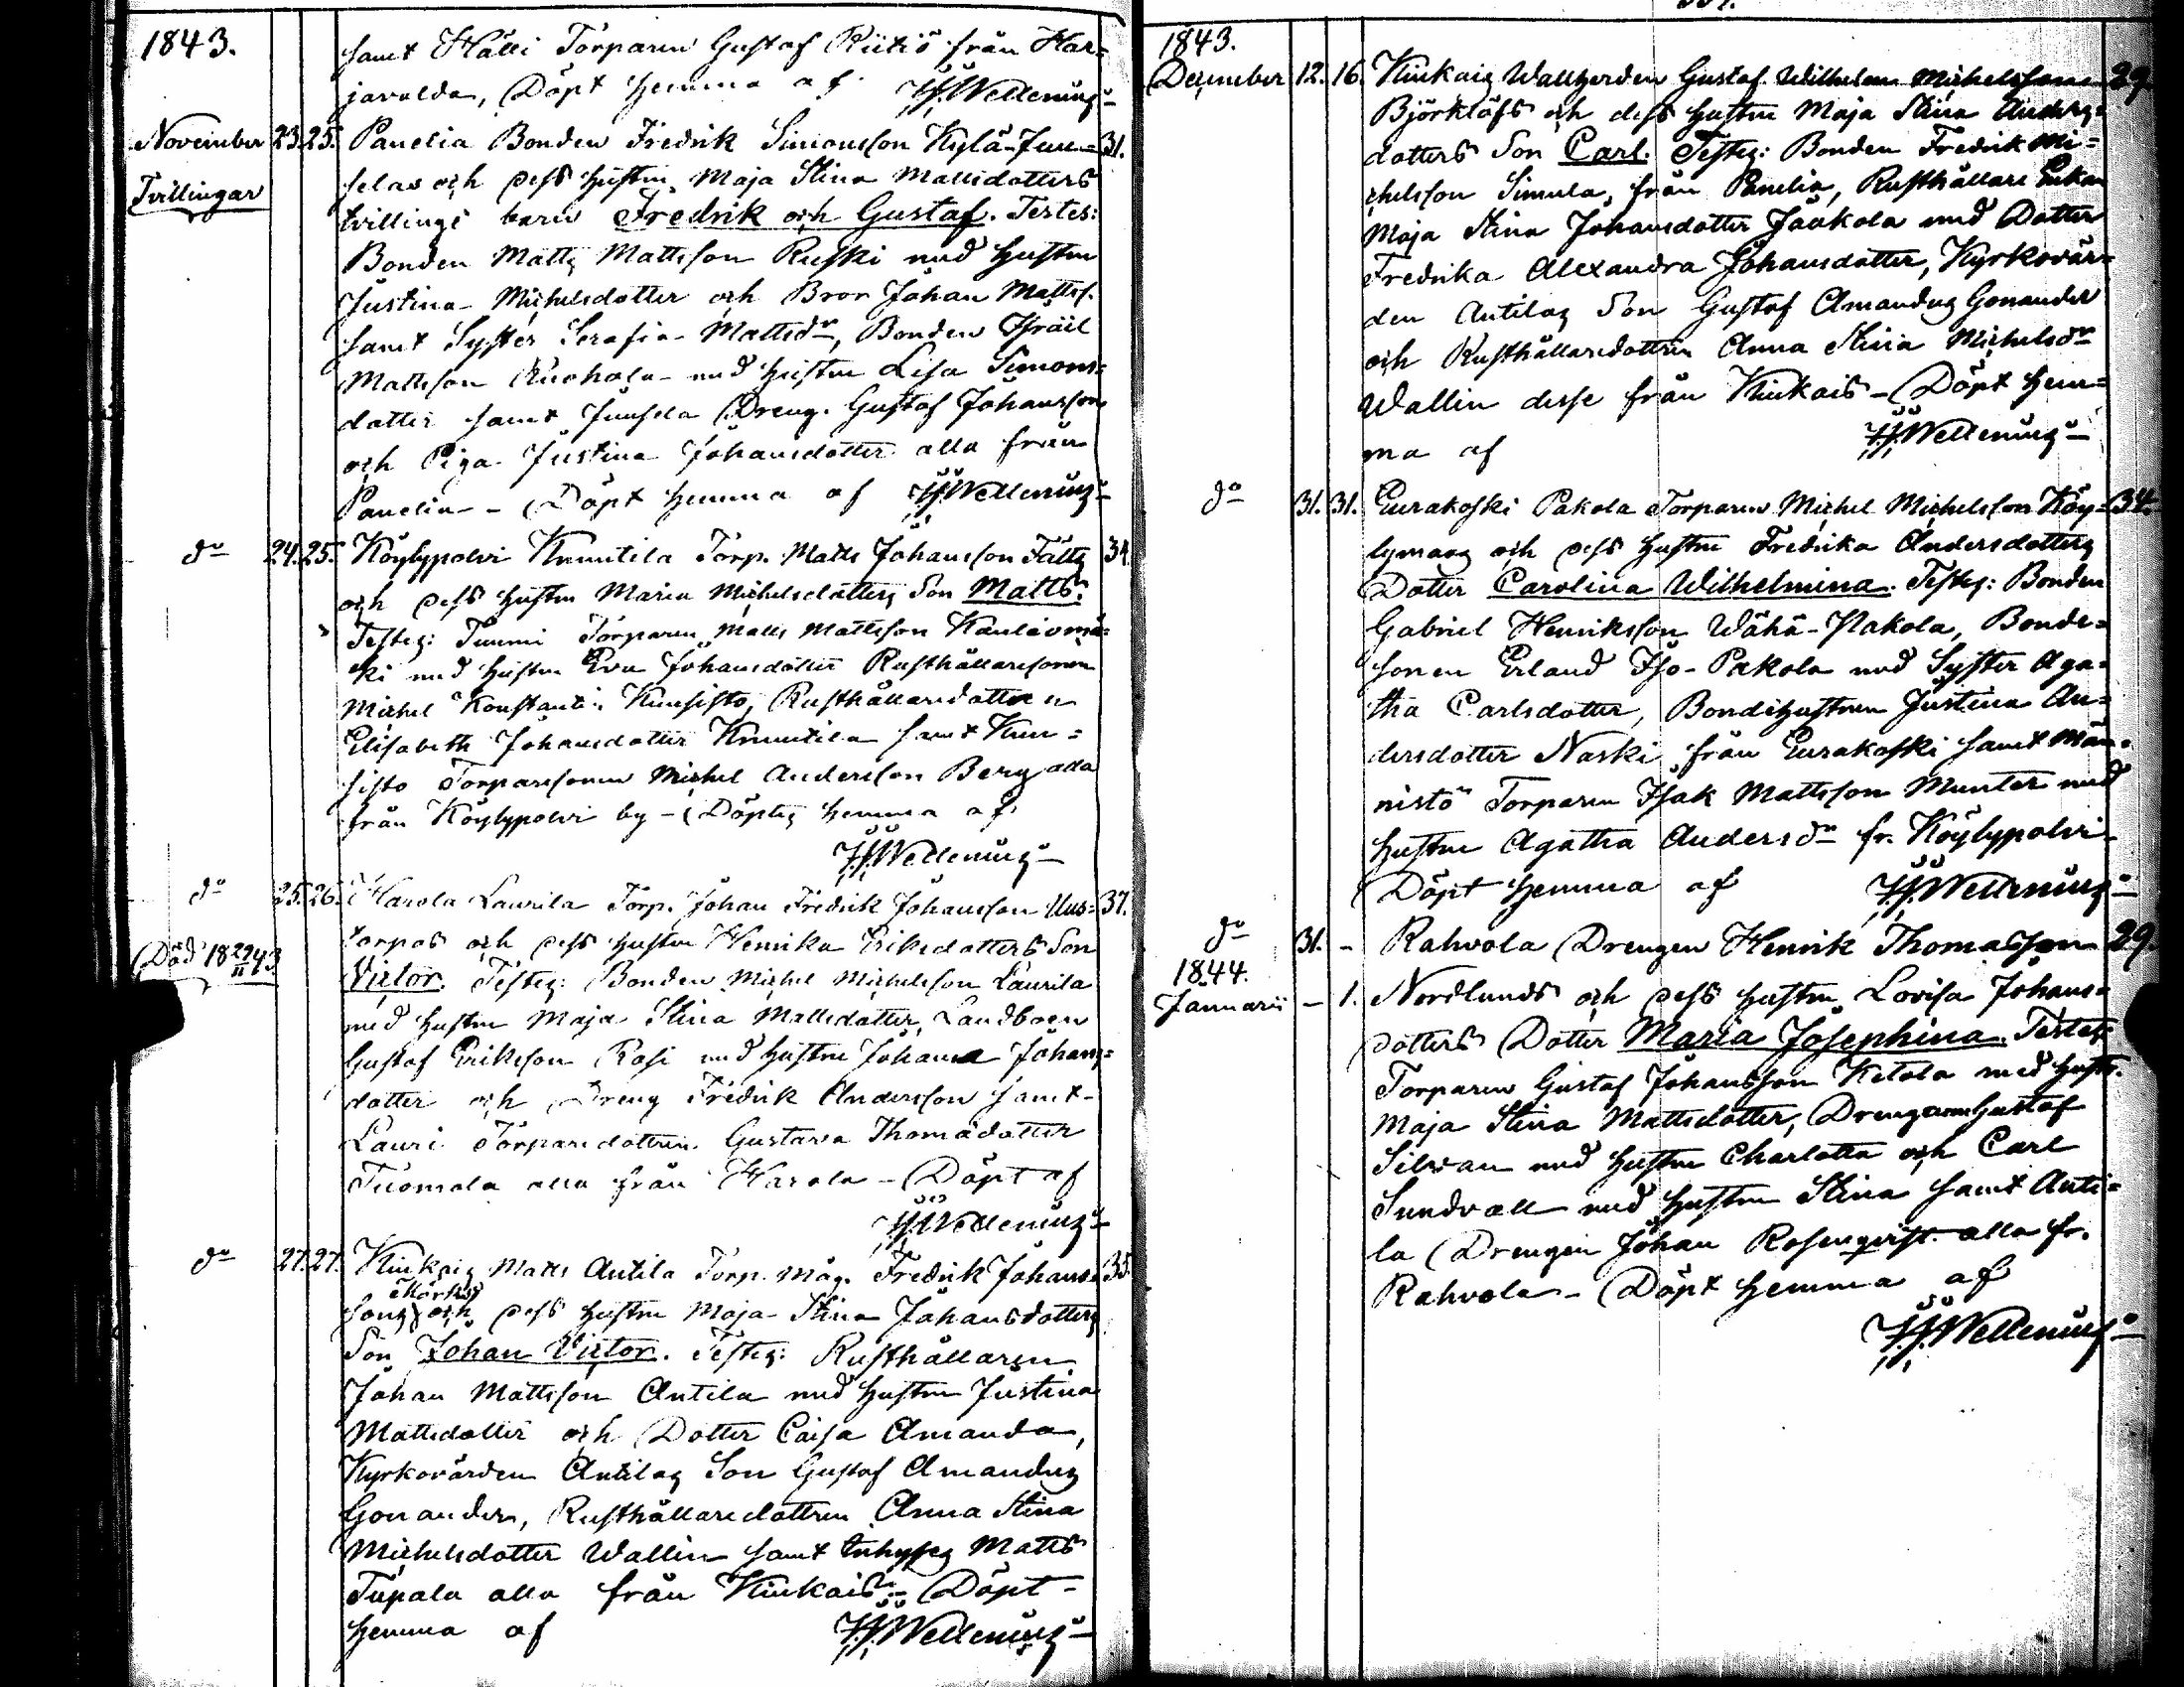 1843.
samt Hälli Torparen Gustaf Riitiö från Har=
javalda, Döpt hemma af HHWelleniuz
November 23. 25. Panelia Bonden Fredrik Simonsson Kylä-Juu= 31.
Tvillingar
selas och dess hustru Maja Stina Mattsdotters
tvillings barn Fredrik och Gustaf. Testes:
Bonden Matts Mattsson Ruski med hustru
Justina Michelsdotter och Bror Johan Mattss.
samt Syster Serafia Mattsdr, Bonden Israël
Mattsson Ruohola med hustru Lisa Simons=
dotter samt Juusela Dreng. Gustaf Johansson
och Piga Justina Johansdotter alla från
Panelia - Döpt hemma af HHWelleniuz
do 24. 25. Köylypolvi Knuutila Torp. Matts Johansson Fälts 34.
och dess hustru Maria Michelsdotters Son Matts.
Testes: Tuomi Torparen Matts Mattsson Kaulavomä=
ki med hustru Eva Johansdotter Rusthållaresonen
Michel Konstantin Kuusisto, Rusthållaredottren
Elisabeth Johansdotter Knuutila samt Kuu=
sisto Torparesonen Michel Andersson Berg alla
från Köylypolvi by - Döptes hemma af
HHWelleniuz
do 25. 26. Harola Laurila Torp. Johan Fredrik Johansson Uus= 37.
Död 18 29/11 43
torpas och dess hustru Henrika Eriksdotters Son
Victor. Testes: Bonden Michel Michelsson Laurila
med hustru Maja Stina Mattsdotter, Landboen
Gustaf Eriksson Rosi med hustru Johanna Johans=
dotter och Dreng Fredrik Andersson samt
Lauri Torparedottren Gustava Thomadotter
Tuomola alla från Harola - Döpt af
HHWelleniuz
do 27. 27. Kiukais Matts Antila Torp. Måg. Fredrik Johans= 33.
sons och dess hustru Maja Stina Johansdotters
Son Johan Victor. Testes: Rusthållaren
Johan Mattsson Antila med hustru Justina
Mattsdotter och Dotter Caisa Amanda,
Kyrkovärden Antilas Son Gustaf Amanduz
Gonander, Rusthållaredottren Anna Stina
Michelsdotter Wallin samt Inhyses Matts
Tupala alla från Kiukais - Döpt
hemma af HHWelleniuz
1843.
December 12. 16. Kiukais Wallherden Gustaf Wilhelm Michelsson 29.
Björklöfs och dess hustru Maja Stina Anders=
dotters Son Carl. Testes: Bonden Fredrik Mi=
chelsson Simula, från Panelia, Rusthållare Enkan
Maja Stina Johansdotter Jaakola med Dotter
Fredrika Alexandra Johansdotter, Kyrkovär=
den Antilas Son Gustaf Amanduz Gonander
och Rusthållaredottren Anna Stina Michelsdr
Wallin desse från Kiukais - Döpt hem=
ma af HHWelleniuz
do 31. 31. Eurakoski Pakola Torparen Michel Michelsson Köy= 34.
lymaas och dess hustru Fredrika Andersdotters
Dotter Carolina Wilhelmina. Testes: Bonden
Gabriel Henriksson Wähä-Pakola, Bonde=
sonen Erland Iso-Pakola med Syster Aga=
tha Carlsdotter, Bondehustrun Justina An=
dersdotter Naski från Eurakoski samt Män=
nistö Torparen Isak Mattsson Munter med
hustru Agatha Andersdr fr. Köylypolvi
Döpt hemma af HHWelleniuz
do 31. - Rahvola Drengen Henrik Thomasson 29.
1844.
Januarii - 1. Nordlunds och dess hustru Lovisa Johans=
dotters Dotter Maria Josephina. Testes:
Torparen Gustaf Johansson Ketola med hustr.
Maja Stina Mattsdotter, Drengarne Gustaf
Silvan med hustru Charlotta och Carl
Sundvall med hustru Stina samt Anti=
la Drengen Johan Rosenqvist alla fr.
Rahvola - Döpt hemma af
HHWelleniuz